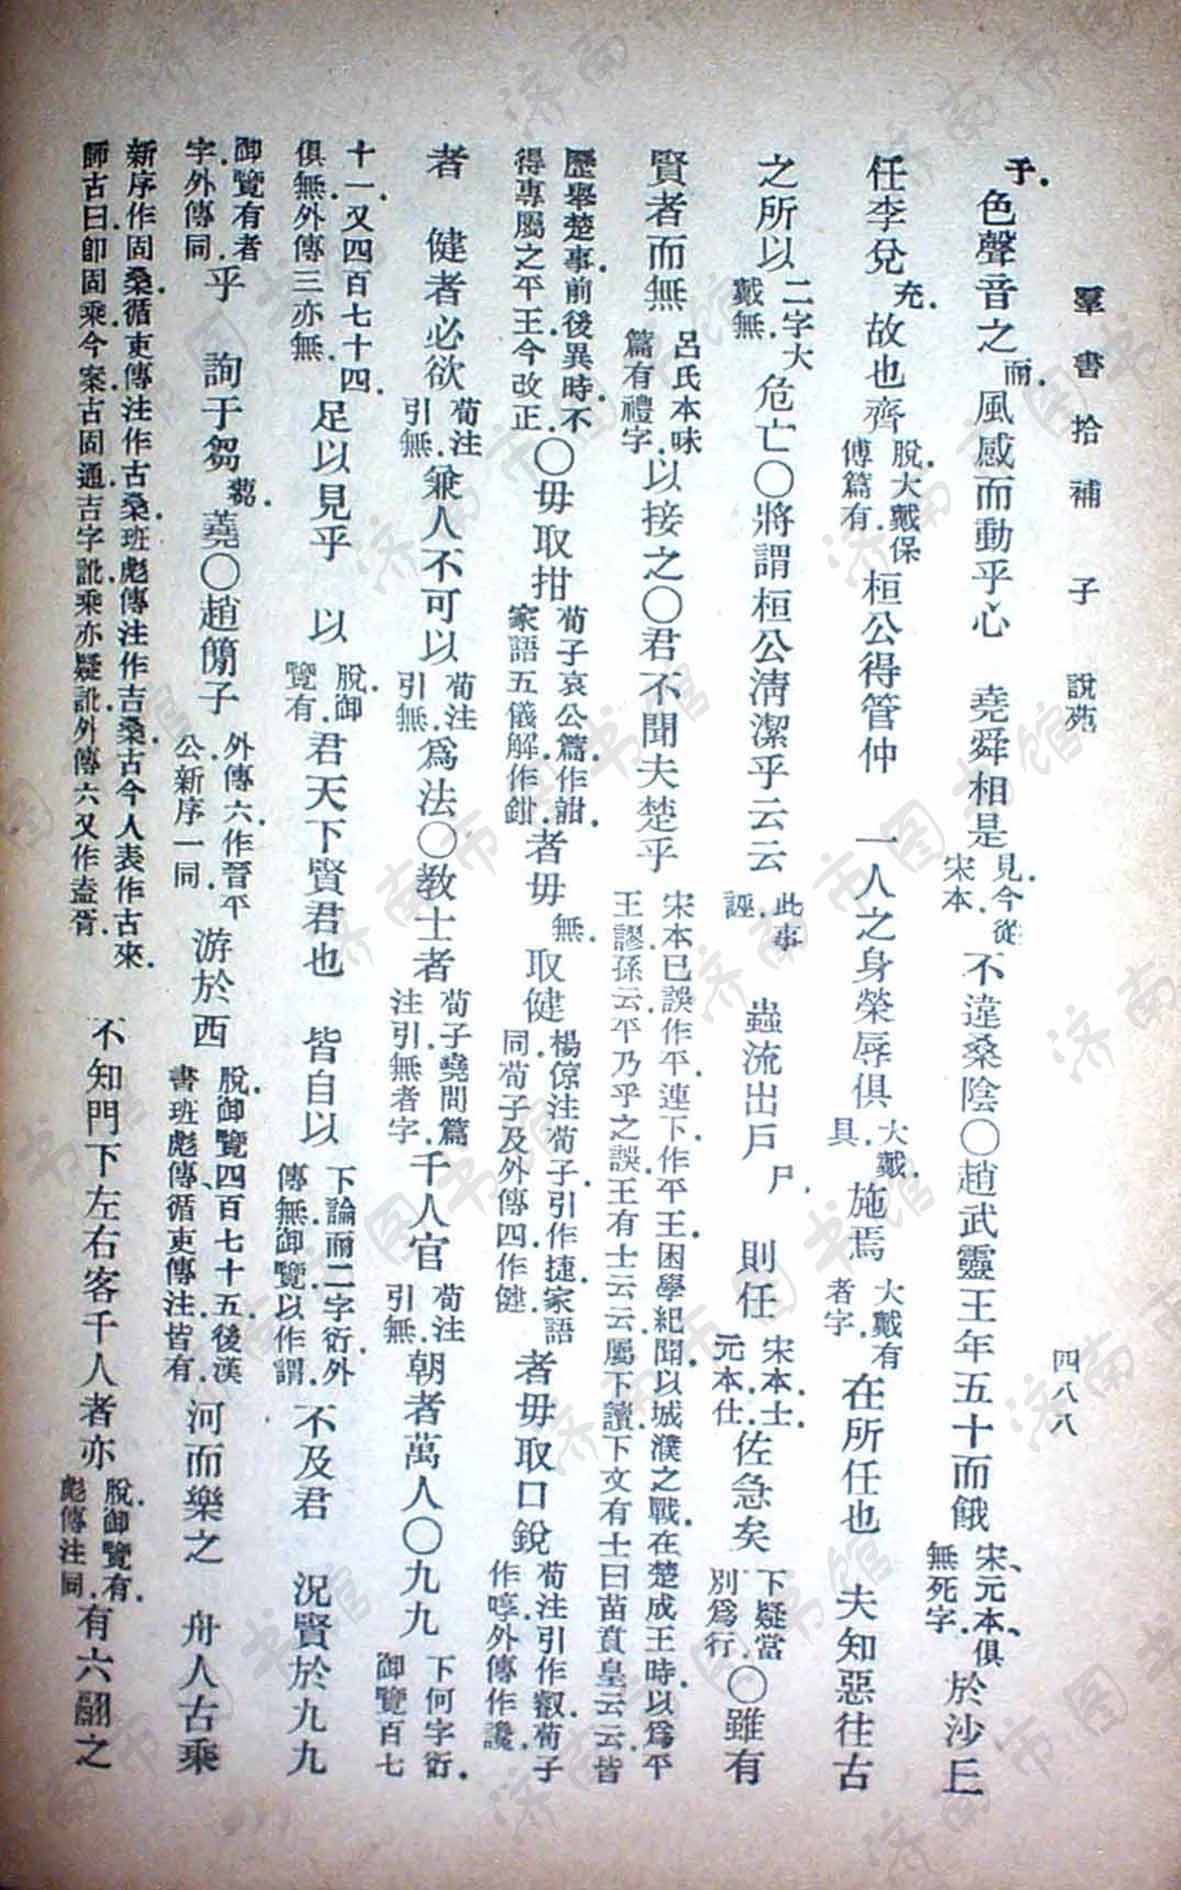 羣書拾補 子 說苑 四八八
于.色聲音之而.風感而動乎心 堯舜相是見.今從宋本.不違桑陰○趙武靈王年五十而餓宋、元本、俱無死字.於沙丘
任李兌充.故也齊脫.大戴保傅篇有.桓公得管仲 一人之身榮辱俱大戴.具.施焉大戴有者字.在所任也 夫知惡往古
之所以二字大戴無.危亡○將謂桓公淸潔乎云云此事誣. 蟲流出戶尸. 則任宋本.士.元本.仕.佐急矣下疑當別爲行.○雖有
賢者而無呂氏本味篇有禮字.以接之○君不聞夫楚乎宋本已誤作平.連下.作平王.困學紀聞.以城濮之戰.在楚成王時.以爲平王謬.孫云.平乃乎之誤.王有士云云.屬下讀.下文有士曰苗賁皇云云.皆
歷舉楚事.前後異時.不得專屬之平王.今改正.○毋取拑荀子哀公篇.作詌.家語五儀解.作鉗.者毋無.取健楊倞注荀子.引作捷.家語同.荀子及外傳四作健.者毋取口銳荀注引作叡.荀子作啍.外傳作讒.
者 健者必欲荀注引無.兼人不可以荀注引無.爲法○敎士者荀子堯問篇注引.無者字.千人官荀注引無.朝者萬人○九九下何字衍.御覽百七
十一.又四百七十四.俱無.外傳三亦無.足以見乎 以脫.御覽有.君天下賢君也 皆自以下論而二字衍.外傳無.御覽.以作謂.不及君 況賢於九九
御覽有者字.外傳同.乎 詢于芻蒭.蕘○趙簡子外傳六作晉平公.新序一同.游於西脫.御覽四百七十五.後漢書班彪傳、循吏傳注.皆有.河而樂之 舟人古乘
新序作固桑.循吏傳注作古桑.班彪傳注作吉桑.古今人表作古來.師古曰.卽固乘.今案古固通.吉字訛.乘亦疑訛.外傳六又作盍胥. 不知門下左右客千人者亦脫.御覽有.彪傳注同.有六翮之